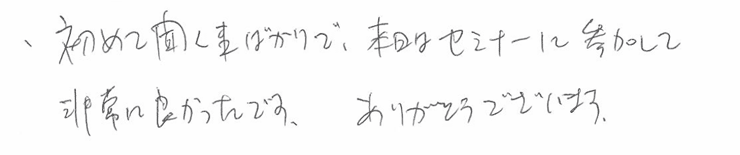 、初めて聞く事ばかりで、本日はセミナーに参加して
非常に良かったです、 ありがとうございます。